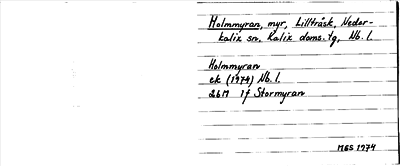 Holmmyran, myr, Lillträsk, Neder-
kalix sn, Kalix doms.tg, Nb. l.
Holmmyran
ek (1974) Nb. l.
26M 1f Stormyran
MGS 1974